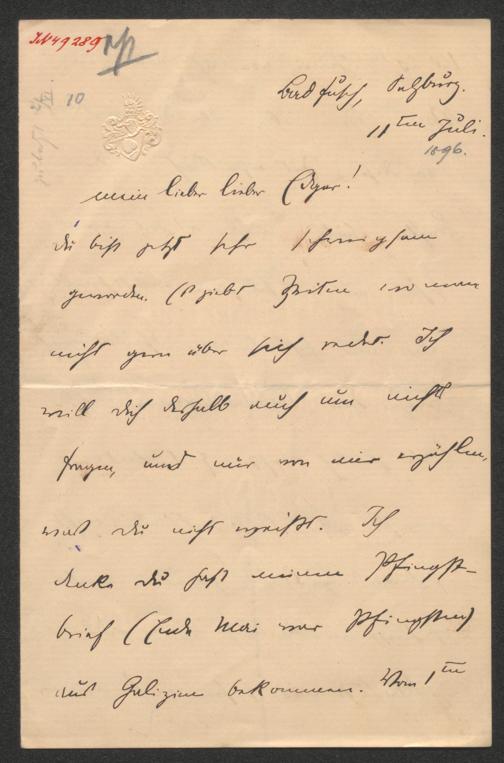 IN 49289
10
Bad Fusch, Salzburg.
11ten Juli.
1896.
mein lieber lieber Edgar!
du bist jetzt sehr schweigsam
geworden. Es giebt Zeiten wo man
nicht gern über sich redet. Ich
will dich deshalb auch um nichts
fragen, und nur von mir erzählen,
was du nicht weißt. Ich
denke du hast meinen Pfingst-
brief (Ende Mai war Pfingsten)
aus Galizien bekommen. Vom 1ten